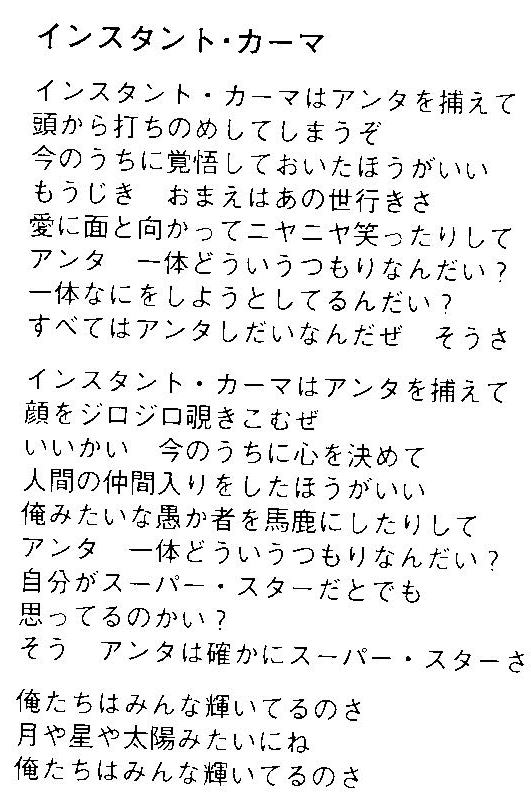 インスタント・カーマ
インスタント・カーマはアンタを捕えて
頭から打ちのめしてしまうぞ
今のうちに覚悟しておいたほうがいい
もうじき　おまえはあの世行きさ
愛に面と向かってニヤニヤ笑ったりして
アンタ　一体どういうつもりなんだい？
一体なにをしようとしてるんだい？
すべてはアンタしだいなんだぜ　そうさ
インスタント・カーマはアンタを捕えて
顔をジロジロ覗きこむぜ
いいかい　今のうちに心を決めて
人間の仲間入りをしたほうがいい
俺みたいな愚か者を馬鹿にしたりして
アンタ　一体どういうつもりなんだい？
自分がスーパー・スターだとでも
思ってるのかい？
そう　アンタは確かにスーパー・スターさ
俺たちはみんな輝いてるのさ
月や星や太陽みたいにね
俺たちはみんな輝いてるのさ